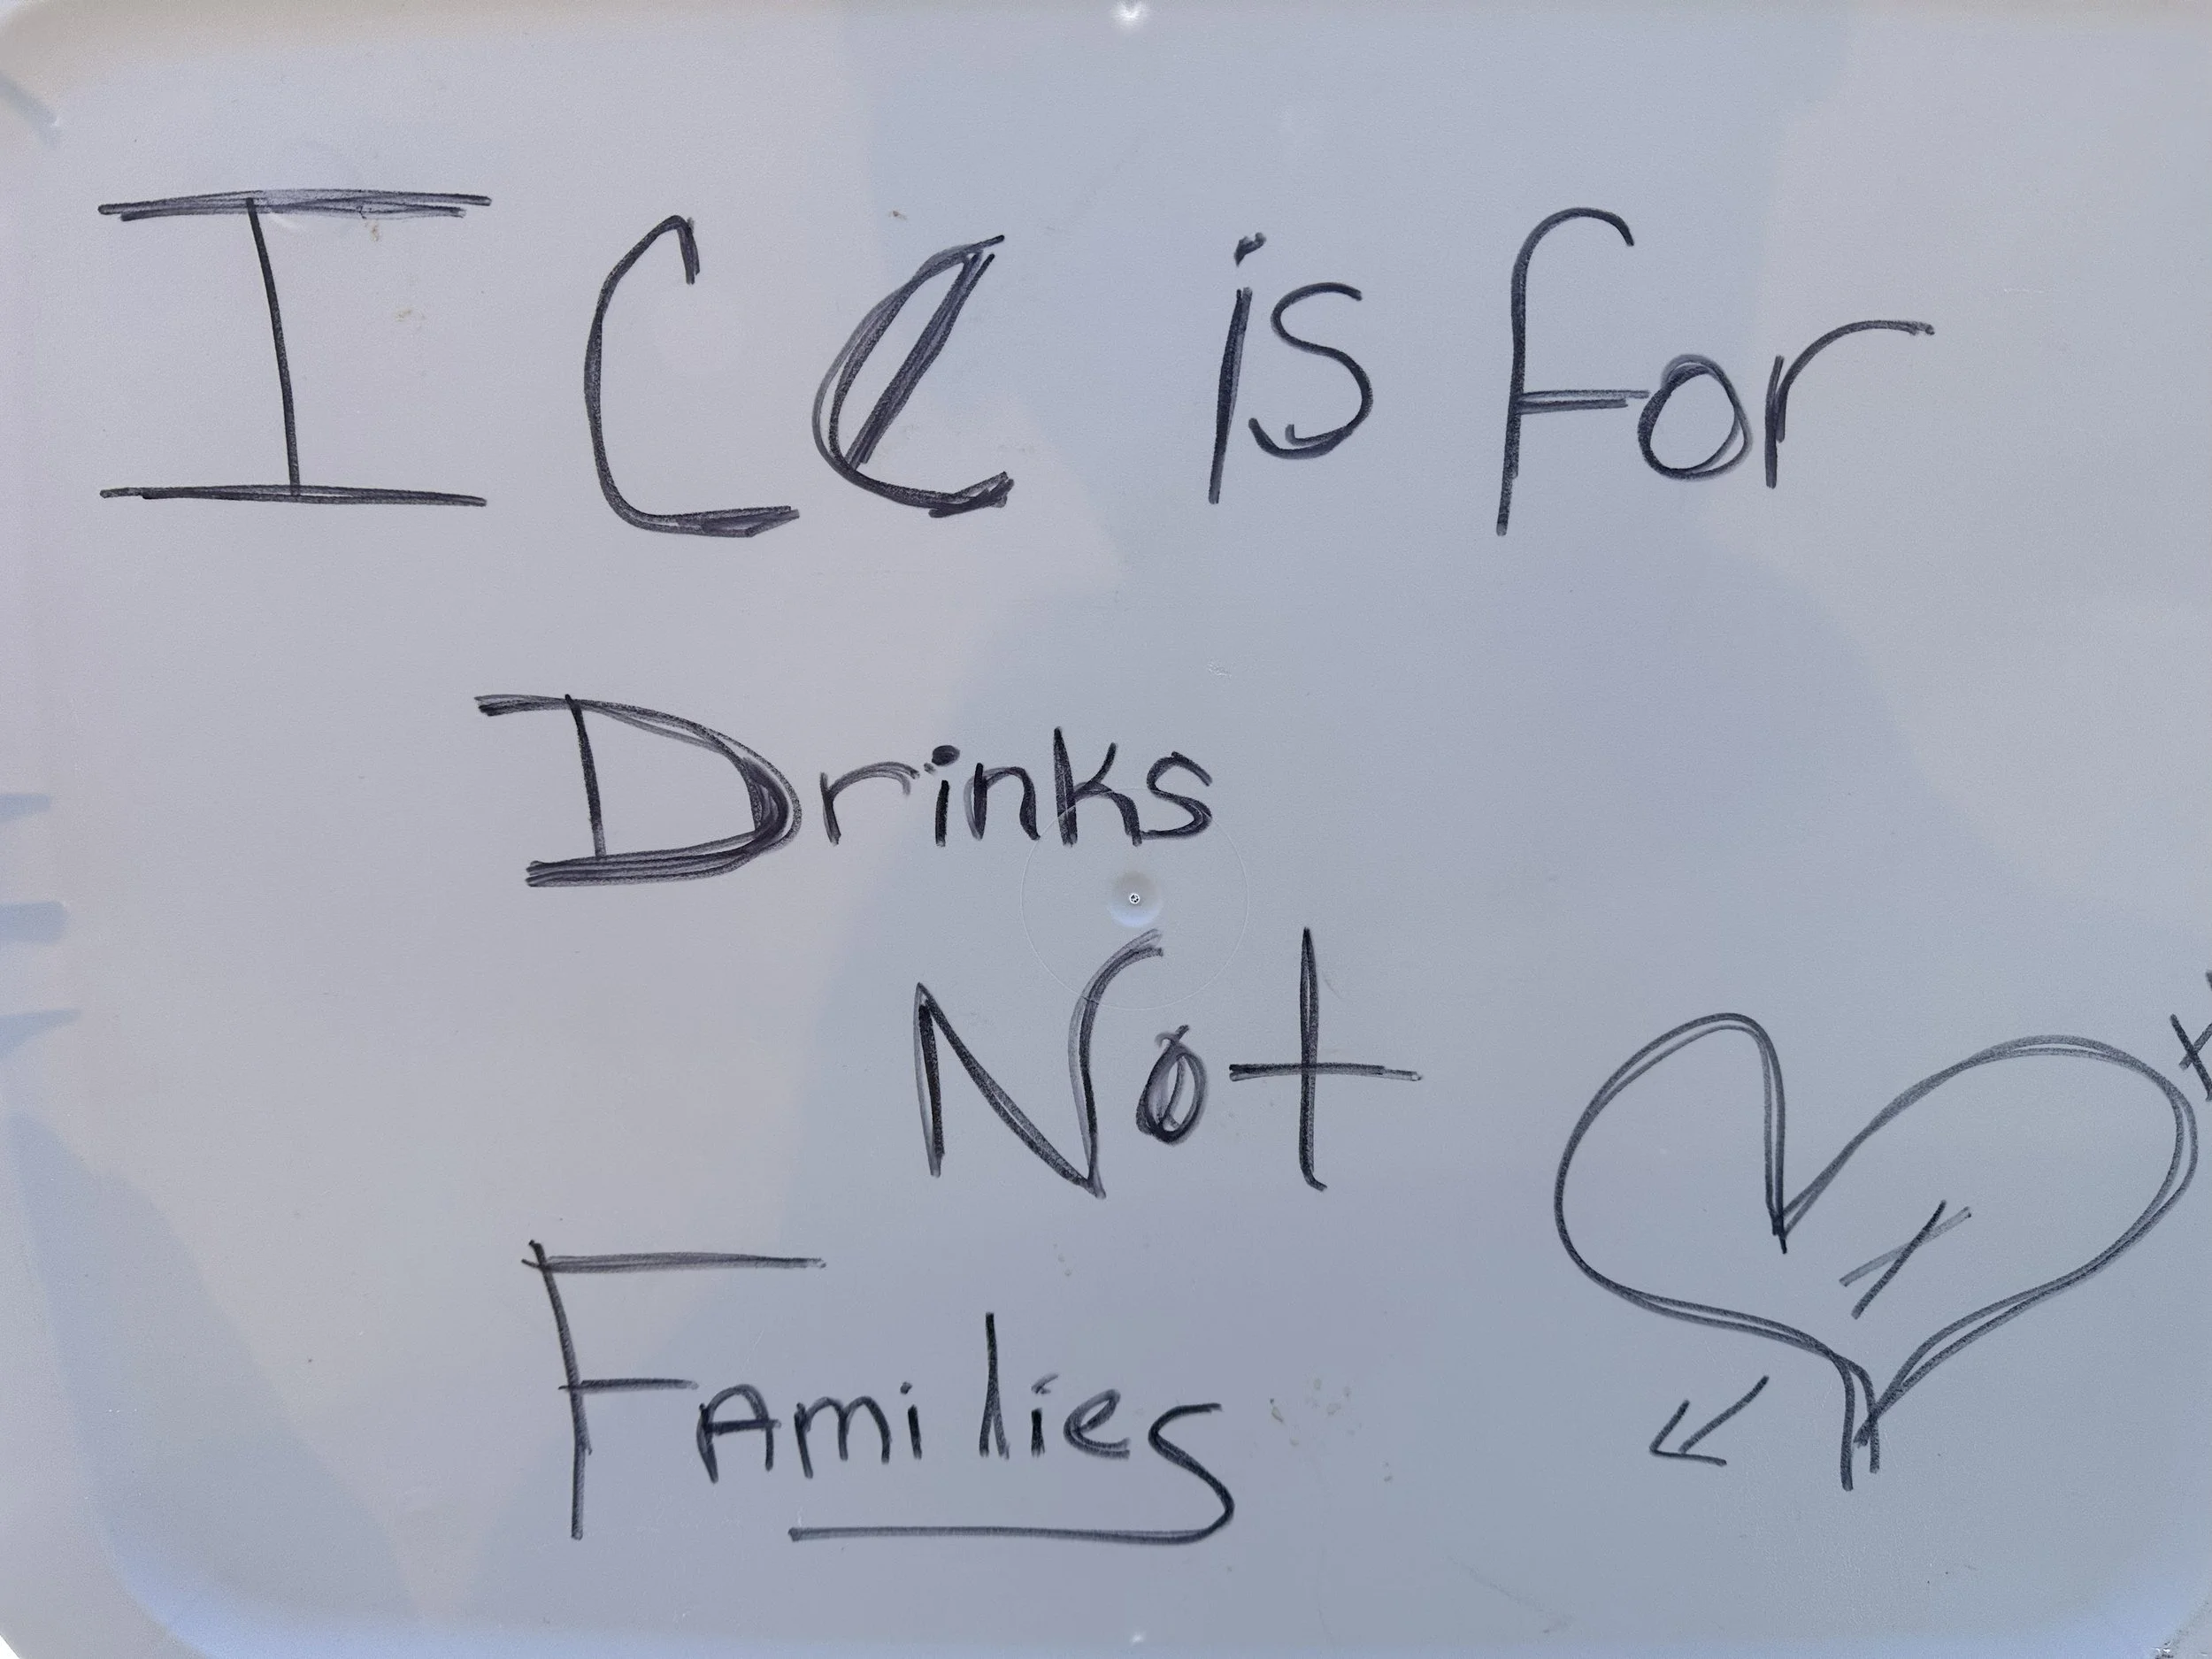 ICe is for
Drinks
Not
FAmilies